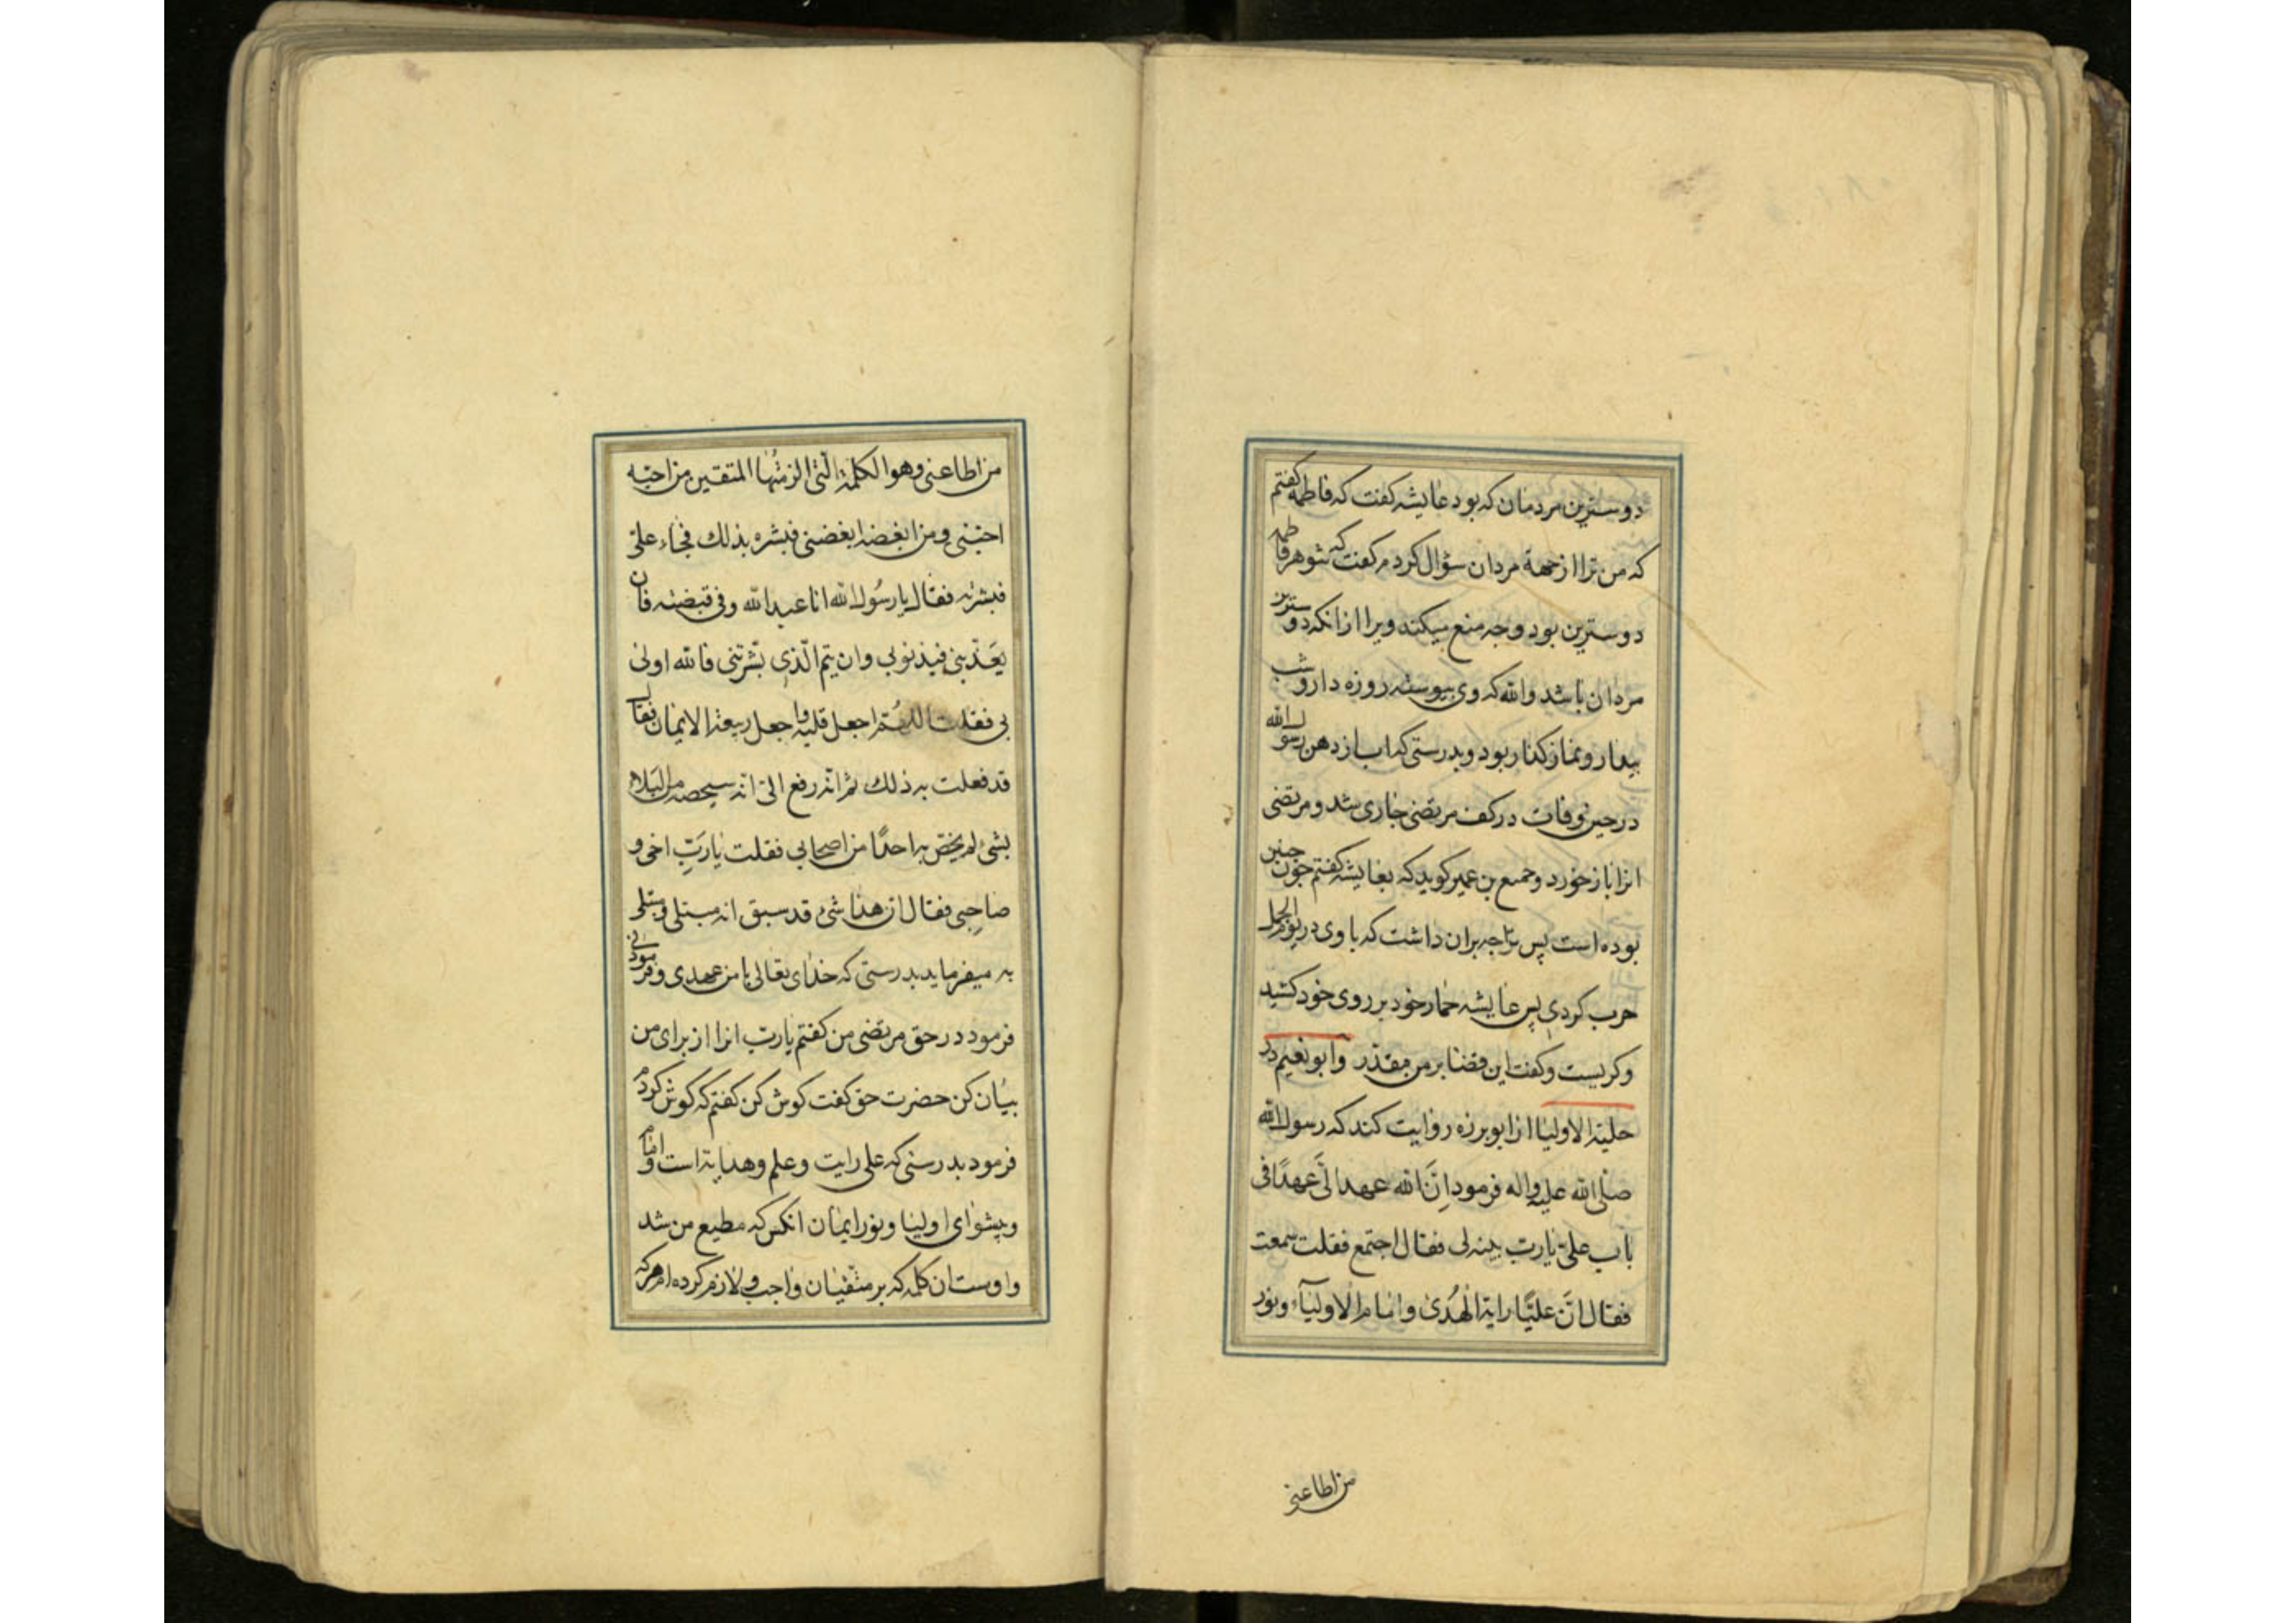 دوسترین مردمان که بود عایشه کفت که فاطمه کفتم
که من ترا از جهة مردان سؤال کردم کفت که شوهر فاطمه
دوسترین بود وچه منع میکند ویرا از انکه دوسترین
مردان باشد والله که وی پیوسته روزه دار و شب
بیدار و نماز کذار بود و بدرستی که اب از دهن رسول الله
در حین وفات در کف مرتضی جاری شد و مرتضی
انرا باز خورد و جمیع بن عمیر کوید که بعایشه کفتم چون چنین
بوده است پس ترا چه بران داشت که با وی در یوم الجمل
حرب کردی پس عایشه خمار خود بر روی خود کشید
وکریست وکفت این قضا بر من مقدر وابو نعیم در
حلیة الاولیا از ابو برزه روایت کند که رسول الله
صلی الله علیه واله فرمود اِنَّ الله عهد الَیَّ عهدًا فی
باب علیّ یا ربّ بینه لی فقال اجتمع فقلت سمعت
فقال انَّ علیًّا رایة الهُدیٰ وامام الاولیآء ونور
من اطاعنی
من اطاعنی وهو الکلمة الّتی الزمتُها المتقین من احبّه
احبّنی ومن ابغضه ابغضنی فبشره بذلك فجاء علیّ
فبشرته فقال یا رسُول الله انا عبد الله وفی قبضته فان
یعَذّبنی فبذنوبی وان یتم الّذی بشّرتنی فالله اولیٰ
بی فقلت اللهُمّ اجعل قلبه واجعل ربیعة الایمان فقال
قد فعلت به ذلك ثم انه رفع الیّ انه سیخصه من البَلاء
بشیء لم یخصّ به احدًا من اصحابی فقلت یا ربِّ اخی و
صاحِبی فقال ان هذا شیء قد سبق انه مبتلی ومبتلی
به میفرماید بدرستی که خدای تعالی با من عهدی وفرمودنی
فرمود در حق مرتضی من کفتم یا ربّ انرا از برای من
بیان کن حضرت حق کفت کوش کن کفتم که کوش کردم
فرمود بدرستی که علی رایت وعلم وهدایة است وامام
وپیشوای اولیا ونور ایمان انکس که مطیع من شد
واوست ان کلمه که بر متّقیان واجب ولازم کرده ام هرکه